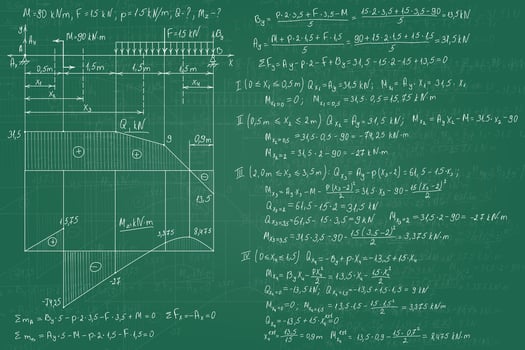 M=90 kN/m; F=15 kN; p=15 kN/m; Q-?, Mz-?
y
Ay
M=90 kN·m
F=15 kN
By
A
B
x
0,5m
1,5m
1,5m
1,5m
x1
x2
x3
x4
31,5
Q, kN
9
0,9m
13,5
15,75
Mz, kN·m
3,375
8,475
-74,25
-27
ΣmA = By·5 - p·2·3,5 - F·3,5 + M = 0 ΣFx = -Ax = 0
ΣmB = Ay·5 - M - p·2·1,5 - F·1,5 = 0
By = (p·2·3,5 + F·3,5 - M)/5 = (15·2·3,5 + 15·3,5 - 90)/5 = 13,5 kN
Ay = (M + p·2·1,5 + F·1,5)/5 = (90 + 15·2·1,5 + 15·1,5)/5 = 31,5 kN
ΣFy = Ay - p·2 - F + By = 31,5 - 15·2 - 15 + 13,5 = 0
I (0 ≤ x1 ≤ 0,5m) Qx1 = Ay = 31,5 kN; Mx1 = Ay·x1 = 31,5·x1
Mx1=0 = 0; Mx1=0,5 = 31,5·0,5 = 15,75 kN·m
II (0,5m ≤ x2 ≤ 2m) Qx2 = Ay = 31,5 kN; Mx2 = Ay x2 - M = 31,5·x2 - 90
Mx2=0,5 = 31,5·0,5 - 90 = -74,25 kN·m
Mx2=2 = 31,5·2 - 90 = -27 kN·m
III (2,0m ≤ x3 ≤ 3,5m): Qx3 = Ay - p(x3-2) = 61,5 - 15·x3;
Mx3 = Ay x3 - M - p(x3-2)²/2 = 31,5·x3 - 90 - 15(x3-2)²/2
Qx3=2 = 61,5 - 15·2 = 31,5 kN
Qx3=3,5 = 61,5 - 15·3,5 = 9 kN Mx3=2 = 31,5·2 - 90 = -27 kN·m
Mx3=3,5 = 31,5·3,5 - 90 - 15(3,5-2)²/2 = 3,375 kN·m
IV (0 ≤ x4 ≤ 1,5) Qx4 = -By + p·x4 = -13,5 + 15·x4
Mx4 = By x4 - px4²/2 = 13,5·x4 - 15·x4²/2
Qx4=0 = -13,5 kN; Qx4=1,5 = -13,5 + 15·1,5 = 9 kN
Mx4=0 = 0; Mx4=1,5 = 13,5·1,5 - 15·1,5²/2 = 3,375 kN·m
Qx4=0 = -13,5 + 15·x4ext = 0
x4ext = 13,5/15 = 0,9m Mx4ext = 13,5·0,9 - 15·0,9²/2 = 8,475 kN·m